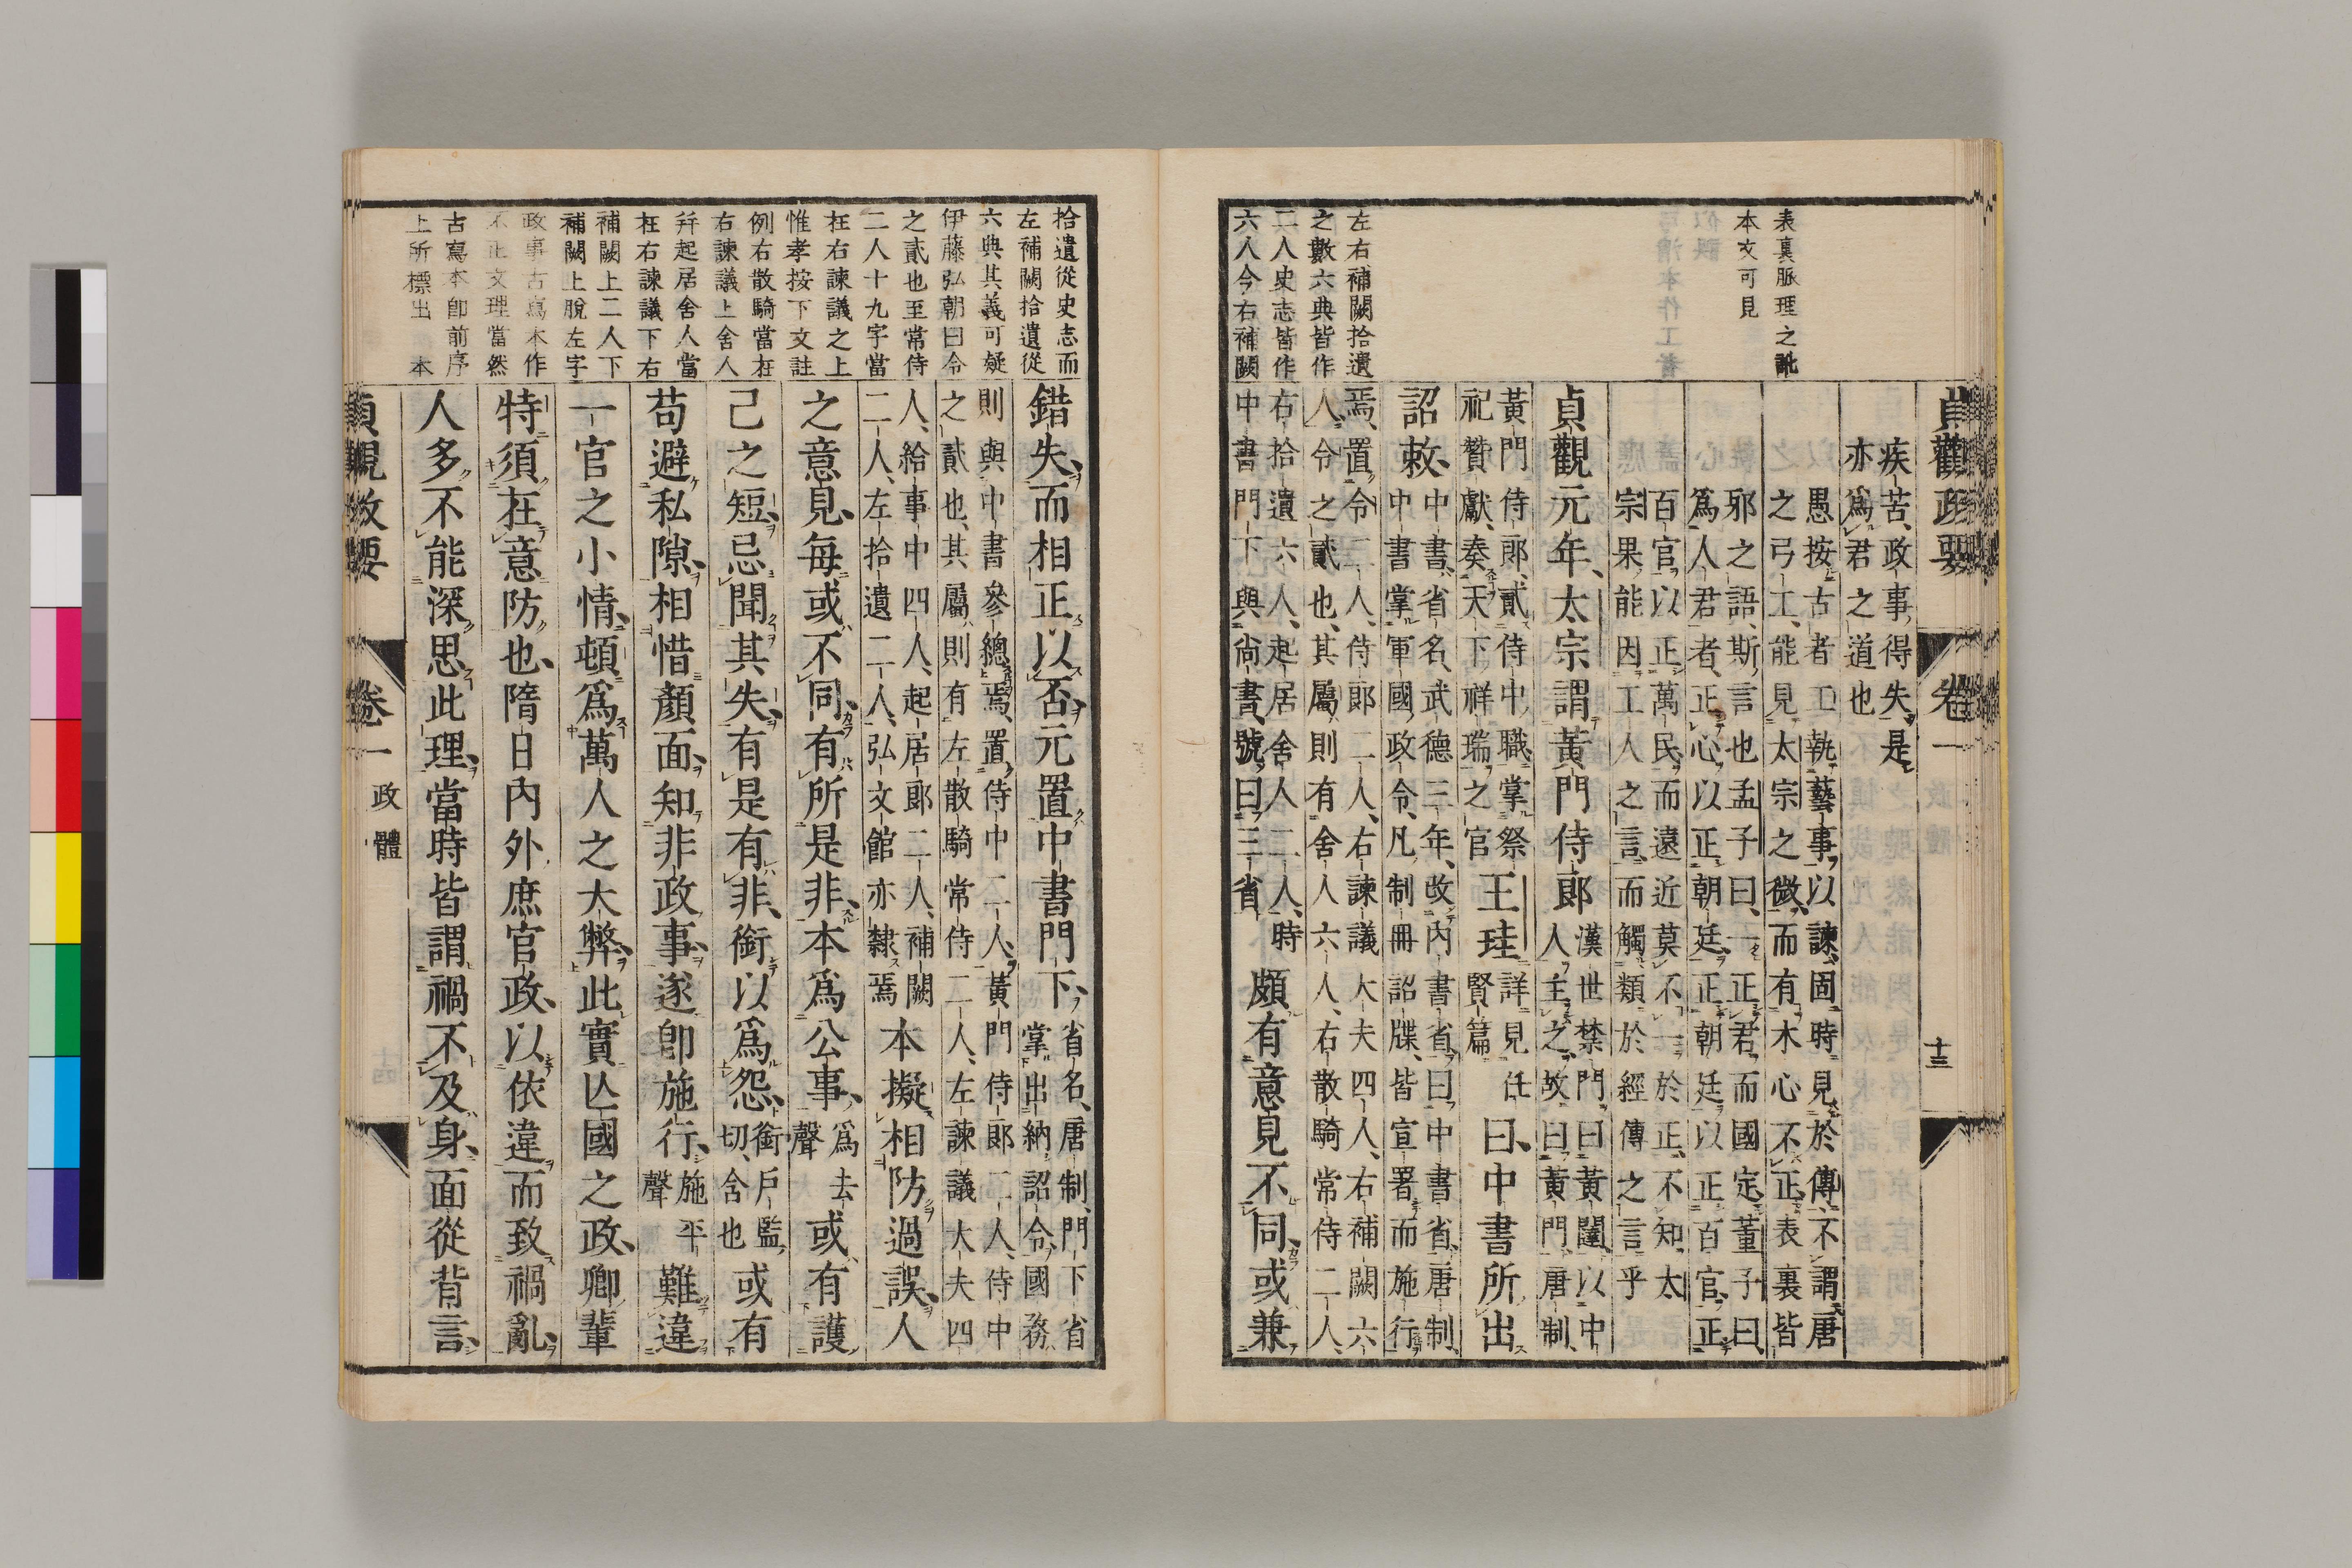 貞觀政要 卷一 十三
表裏脈理之訛
本文可見
左右補闕拾遺
之數六典皆作
二人史志皆作
六人今右補闕
疾苦、政事得失、是
亦爲君之道也
愚按古者工執藝事以諫、固時見於傳、不謂唐
之弓工、能見太宗之微、而有木心不正、表裏皆
邪之語、斯言也孟子曰、一正君而國定、董子曰、
爲人君者、正心以正朝廷、正朝廷以正百官、正
百官以正萬民、而遠近莫不一於正、不知太
宗果能因工人之言、而觸類於經傳之言乎
貞觀元年、太宗謂黃門侍郎 漢世禁門曰黃闥、以中
人主之、故曰黃門、唐制、
黃門侍郎、貳侍中職、掌祭
祀贊獻、奏天下祥瑞之官 王珪 詳見任
賢篇 曰、中書所出
詔敕、中書、省名、武德三年、改內書省曰中書省、唐制、
中書掌軍國政令、凡制冊詔牒、皆宣署而施行
焉、置令二人、侍郎二人、右諫議大夫四人、右補闕六
人、令之貳也、其屬則有舍人六人、右散騎常侍二人、
右拾遺六人、起居舍人二人、時
中書門下與尚書、號曰三省 頗有意見不同、或兼
拾遺從史志而
左補闕拾遺從
六典其義可疑
伊藤弘朝曰令
之貳也至常侍
二人十九字當
在右諫議之上
惟孝按下文註
例右散騎當在
右諫議上舍人
幷起居舍人當
在右諫議下右
補闕上二人下
補闕上脫左字
政事古寫本作
不正文理當然
古寫本卽前序
上所標出 本
錯失、而相正以否、元置中書門下、省名、唐制、門下省
掌出納詔令、國務
則與中書參總焉、置侍中二人、黃門侍郎二人、侍中
之貳也、其屬則有左散騎常侍二人、左諫議大夫四
人、給事中四人、起居郎二人、補闕
二人、左拾遺二人、弘文館亦隸焉 本擬相防過誤、人
之意見、每或不同、有所是非、本爲公事、爲去
聲 或有護
己之短、忌聞其失、有是有非、銜以爲怨、銜戶監
切、含也 或有
苟避私隙、相惜顏面、知非政事、遂卽施行、施平
聲 難違
一官之小情、頓爲萬人之大弊、此實亾國之政、卿輩
特須在意防也、隋日內外庶官政、以依違而致禍亂、
人多不能深思此理、當時皆謂禍不及身、面從背言、
貞觀政要 卷一 政體